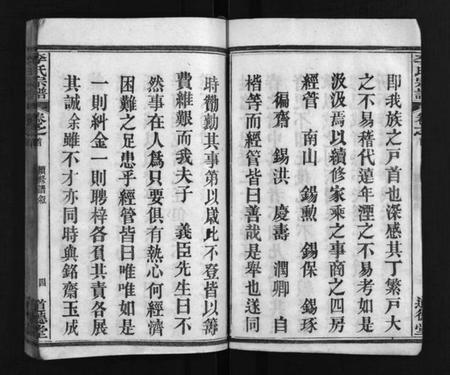 卽我族之戸首也深感其丁繁戸大
之不易稽代遠年湮之不易考如是
汲汲焉以續修家乘之事商之四房
經管 南山 錫勲 錫保 錫琢
徧齋 錫洪 慶壽 潤卿 自
楷等而經管皆曰善哉是舉也遂同
李氏宗譜 卷之首 續修譜叙 四 首德堂
時勸勸其事第以歲比不登皆以籌
費維艱而我夫子 義臣先生曰不
然事在人為只要俱有熱心何經濟
困難之足患乎經管皆曰唯唯如是
一則糾金一則聘梓各負其責各展
其誠余雖不才亦同時與銘齋玉成